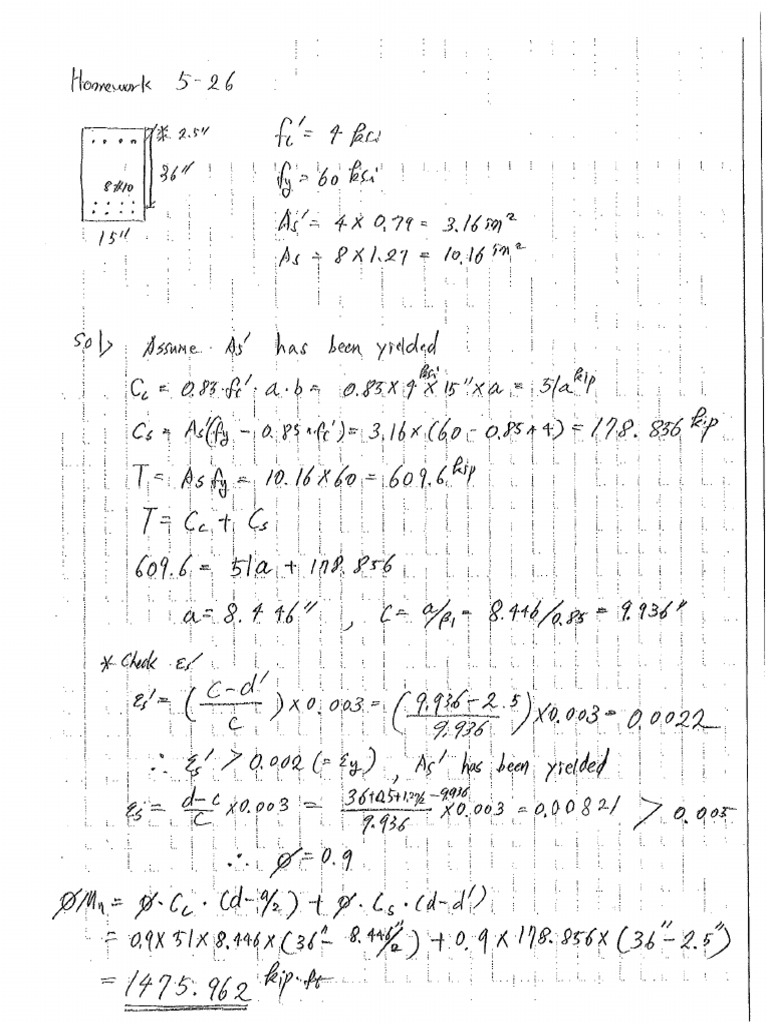 Homework 5-26
* 2.5"
36"
8#10
15"
fc' = 4 ksi
fy = 60 ksi
As' = 4 × 0.79 = 3.16 in²
As = 8 × 1.27 = 10.16 in²
Sol> Assume As' has been yielded
Cc = 0.85·fc'·a·b = 0.85 × 4 ksi × 15" × a = 51a kip
Cs = As'(fy - 0.85*fc') = 3.16 × (60 - 0.85*4) = 178.856 kip
T = As fy = 10.16 × 60 = 609.6 kip
T = Cc + Cs
609.6 = 51a + 178.856
a = 8.446" , C = a/β1 = 8.446/0.85 = 9.936"
* Check εs'
εs' = (C-d'/C) × 0.003 = (9.936 - 2.5/9.936) × 0.003 = 0.0022
∴ εs' > 0.002 (= εy) , As' has been yielded
εs = d-c/C × 0.003 = 36+0.5+1.27/2 - 9.936/9.936 × 0.003 = 0.00821 > 0.005
∴ Ø = 0.9
ØMn = Ø·Cc·(d-a/2) + Ø·Cs·(d-d')
= 0.9 × 51 × 8.446 × (36" - 8.446"/2) + 0.9 × 178.856 × (36" - 2.5")
= 1475.962 kip·ft